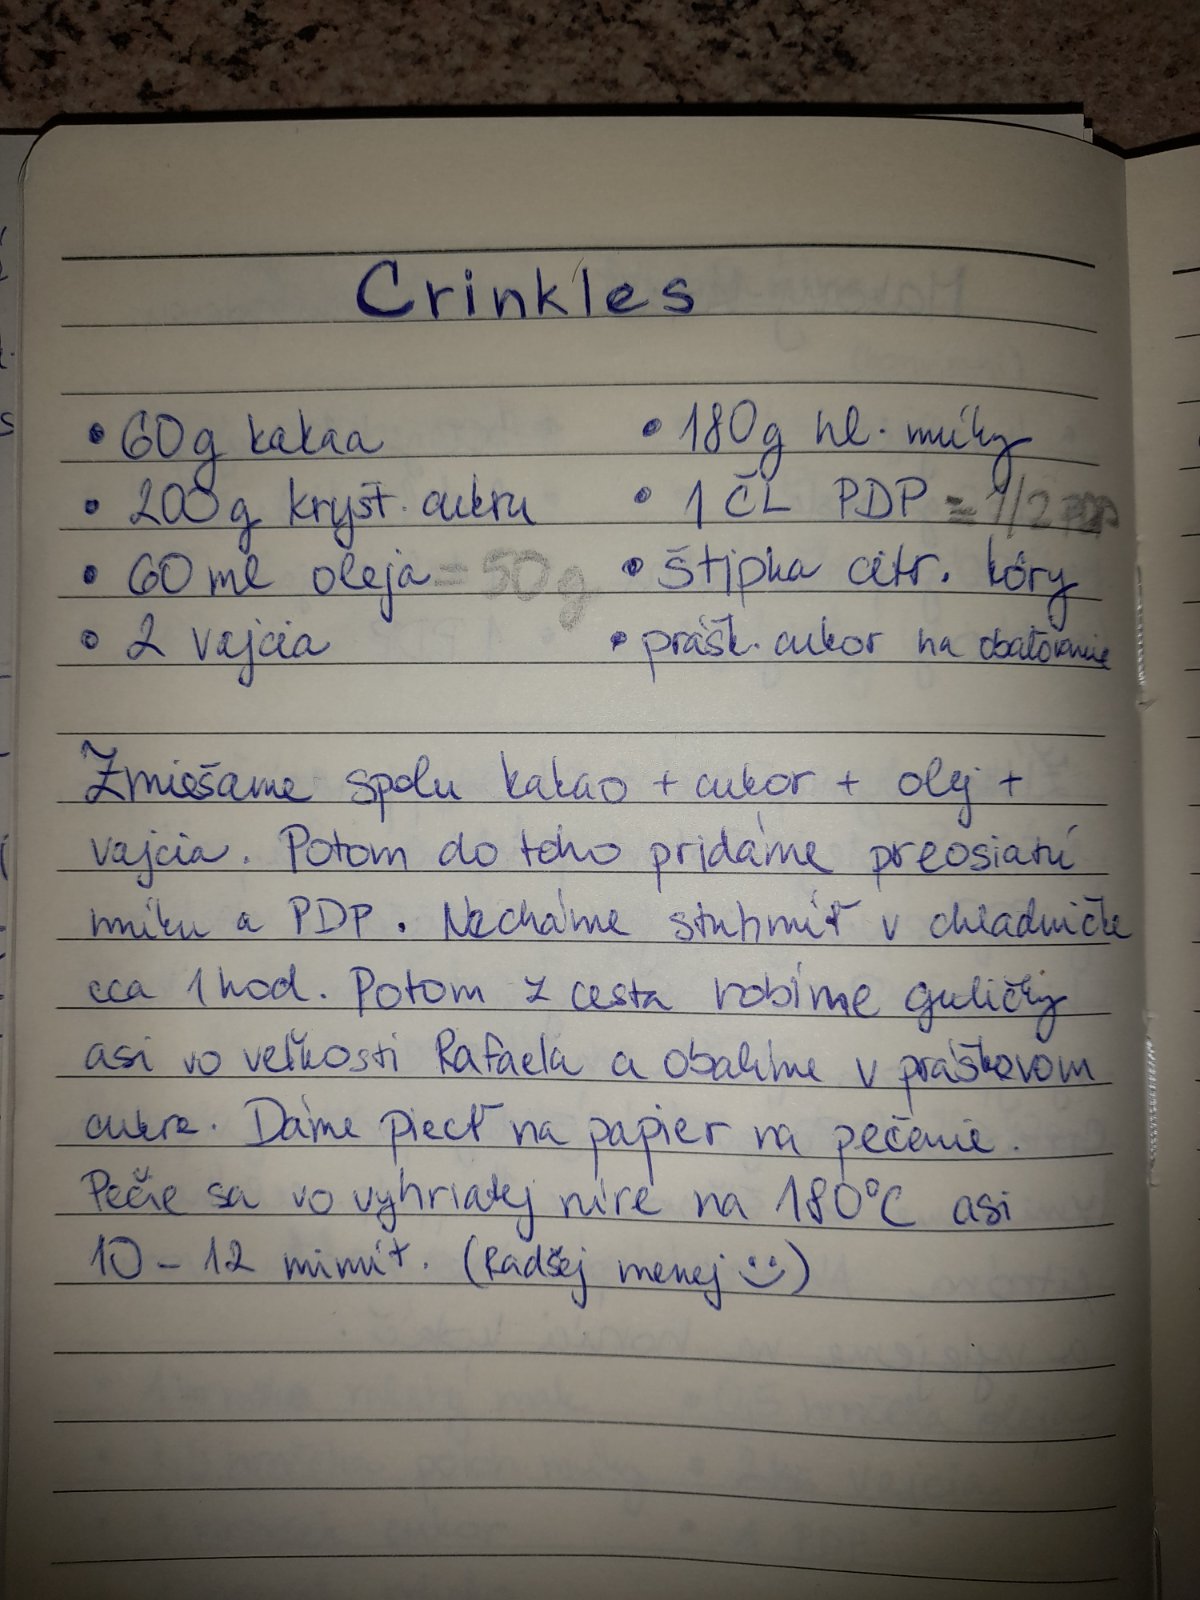 Crinkles
• 60g kakaa
• 200g kryšt. cukru
• 60 ml oleja = 50g
• 2 vajcia
• 180g hl. múky
• 1 ČL PDP = 1/2 PDP
• štipka citr. kôry
• prášk. cukor na obaľovanie
Zmiešame spolu kakao + cukor + olej +
vajcia. Potom do toho pridáme preosiatú
múku a PDP. Necháme stuhnúť v chladničke
cca 1 hod. Potom z cesta robíme guličky
asi vo veľkosti Rafaela a obalíme v práškovom
cukre. Dáme piecť na papier na pečenie.
Pečie sa vo vyhriatej rúre na 180°C asi
10 - 12 minút. (Radšej menej :))